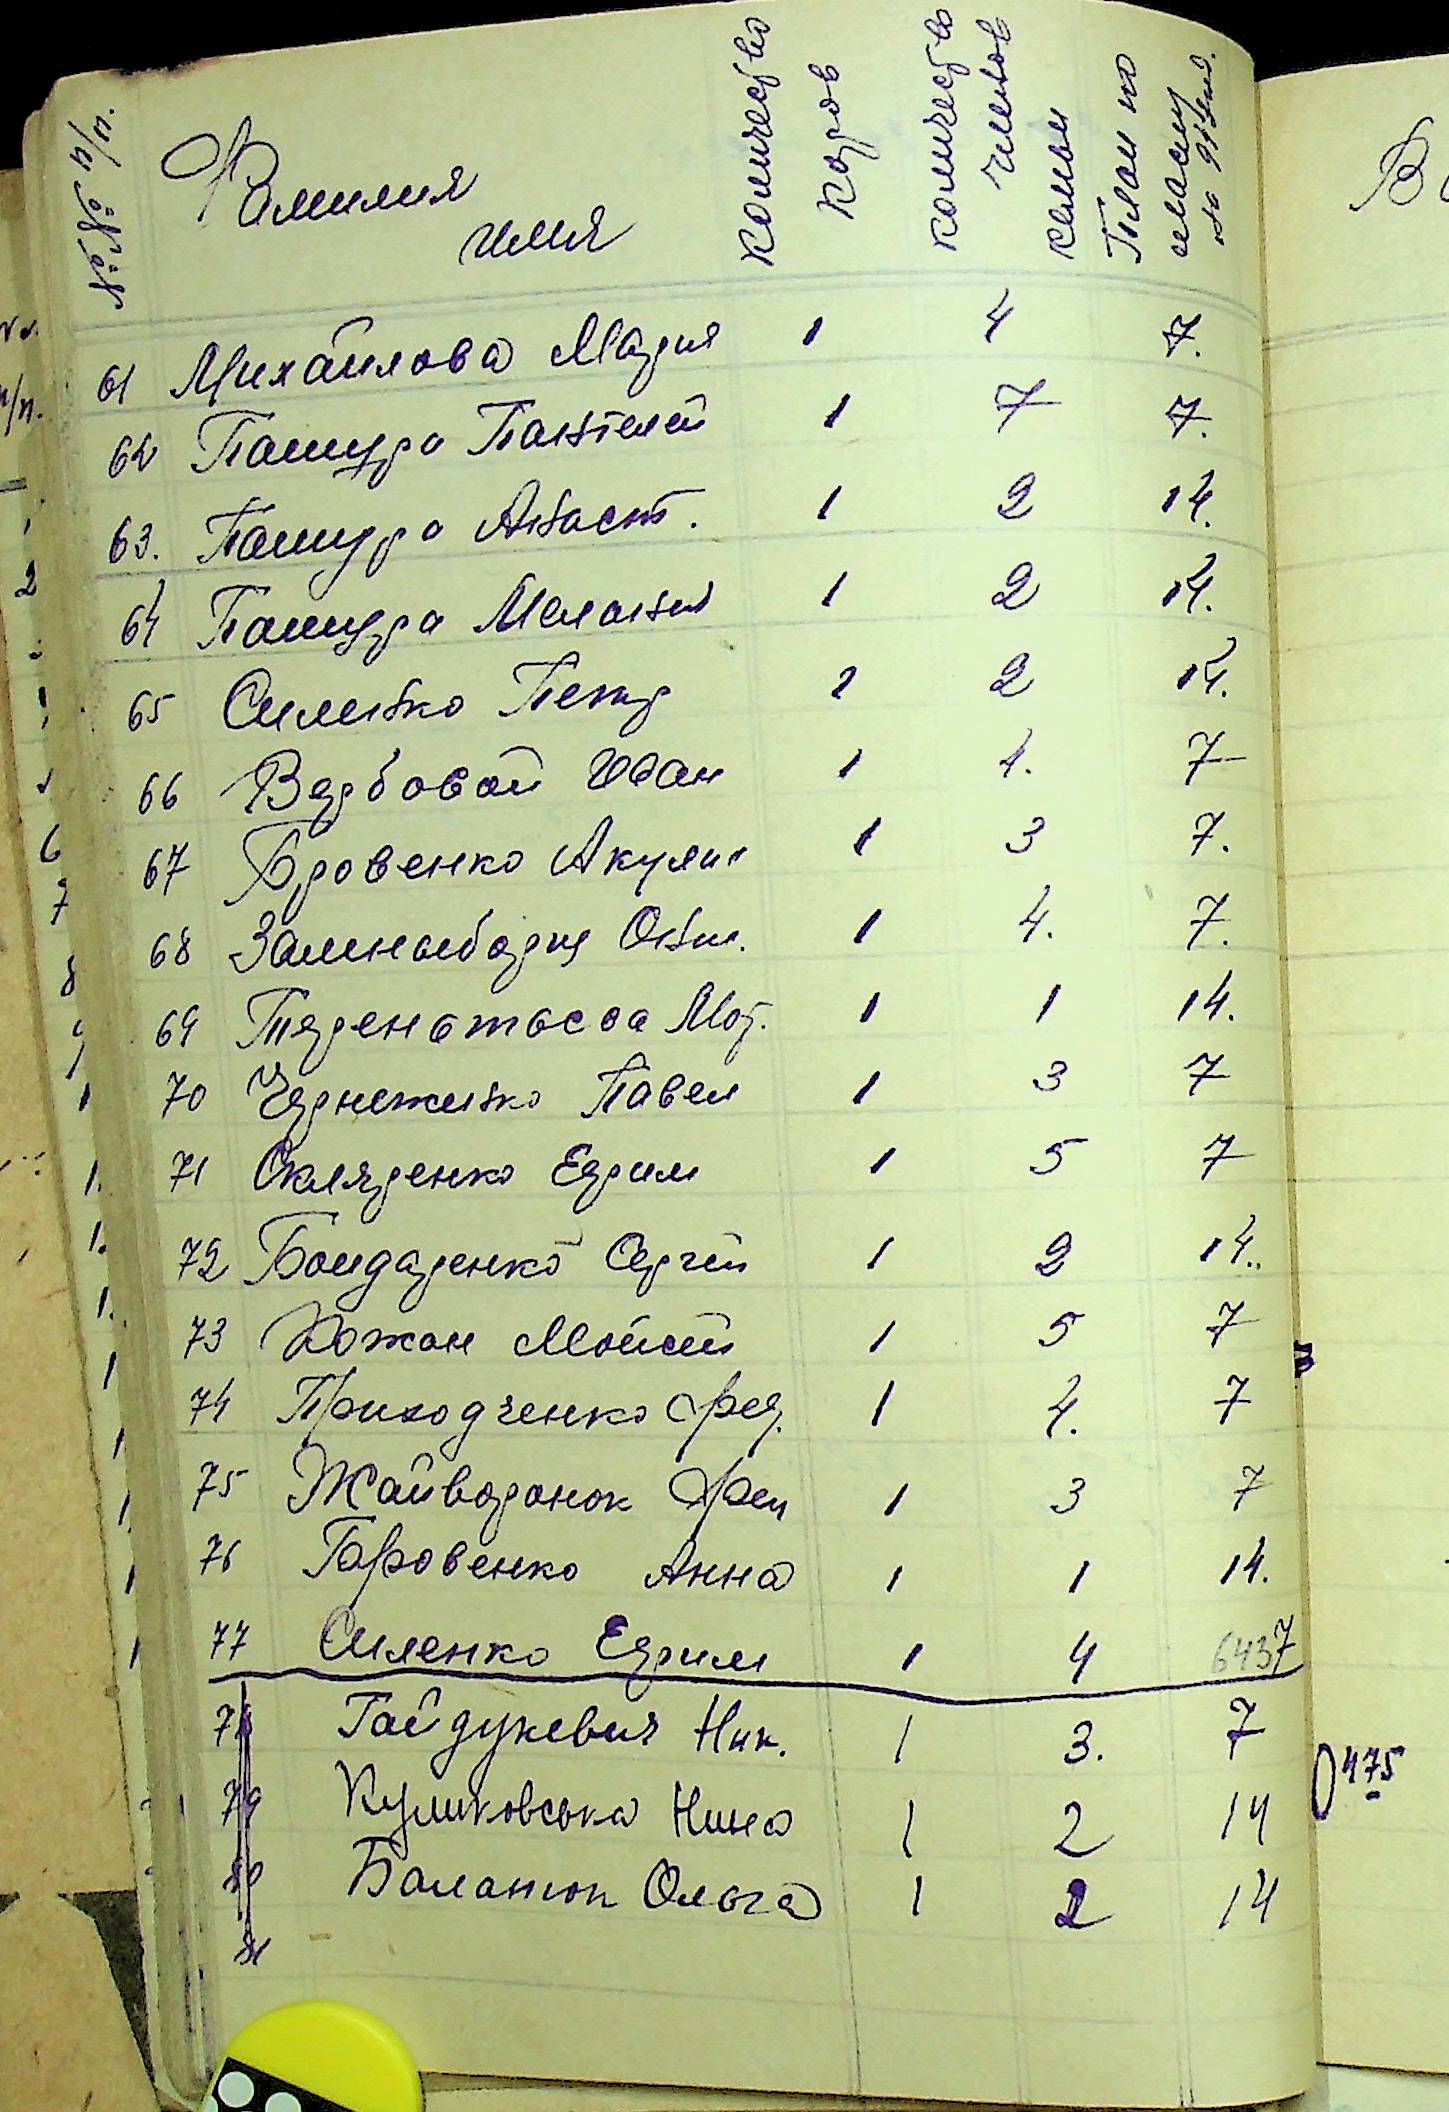 №№ п/п. Фамилия имя количество коров количество членов семьи План по маслу
61 Михайлова Мария 1 4 7.
62 Пашура Пантелей 1 7 7.
63. Пашура Анаст. 1 2 14.
64 Пашура Мелания 1 2 14.
65 Силенко Петр 1 2 14.
66 Вербовой Иван 1 4. 7
67 Бровенко Акулин 1 3 7.
68 1 4. 7.
69 1 1 14.
70 Черненженко Павел 1 3 7
71 Скляренко Ефрим 1 5 7
72 Бондаренко Сергей 1 2 14..
73 Кожан Мойсей 1 5 7
74 Приходченко Фед. 1 4. 7
75 Жайворонок 1 3 7
76 Гаровенко Анна 1 1 14.
77 Силенко Ефрим 1 4 6437
78 Гайдукевич Ник. 1 3. 7
79 Куликовська Нина 1 2 14
80 Баланюк Ольга 1 2 14
81
475